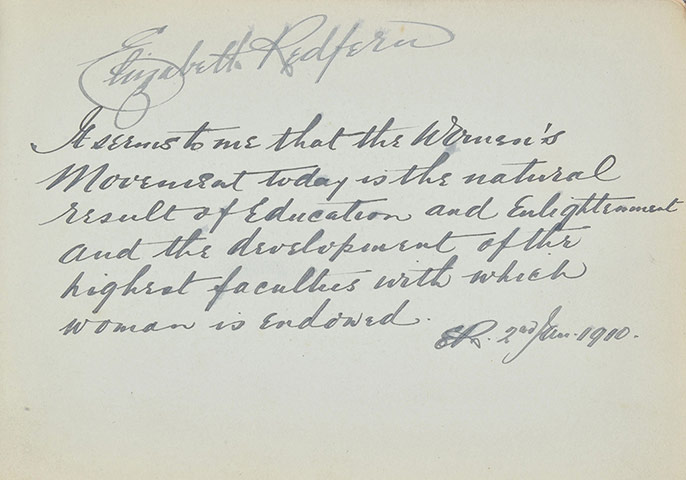 Elizabeth Redfern
It seems to me that the Women's
Movement today is the natural
result of Education and Enlightenment
and the development of the
highest faculties with which
woman is endowed.
ER. 2nd Jan. 1910.